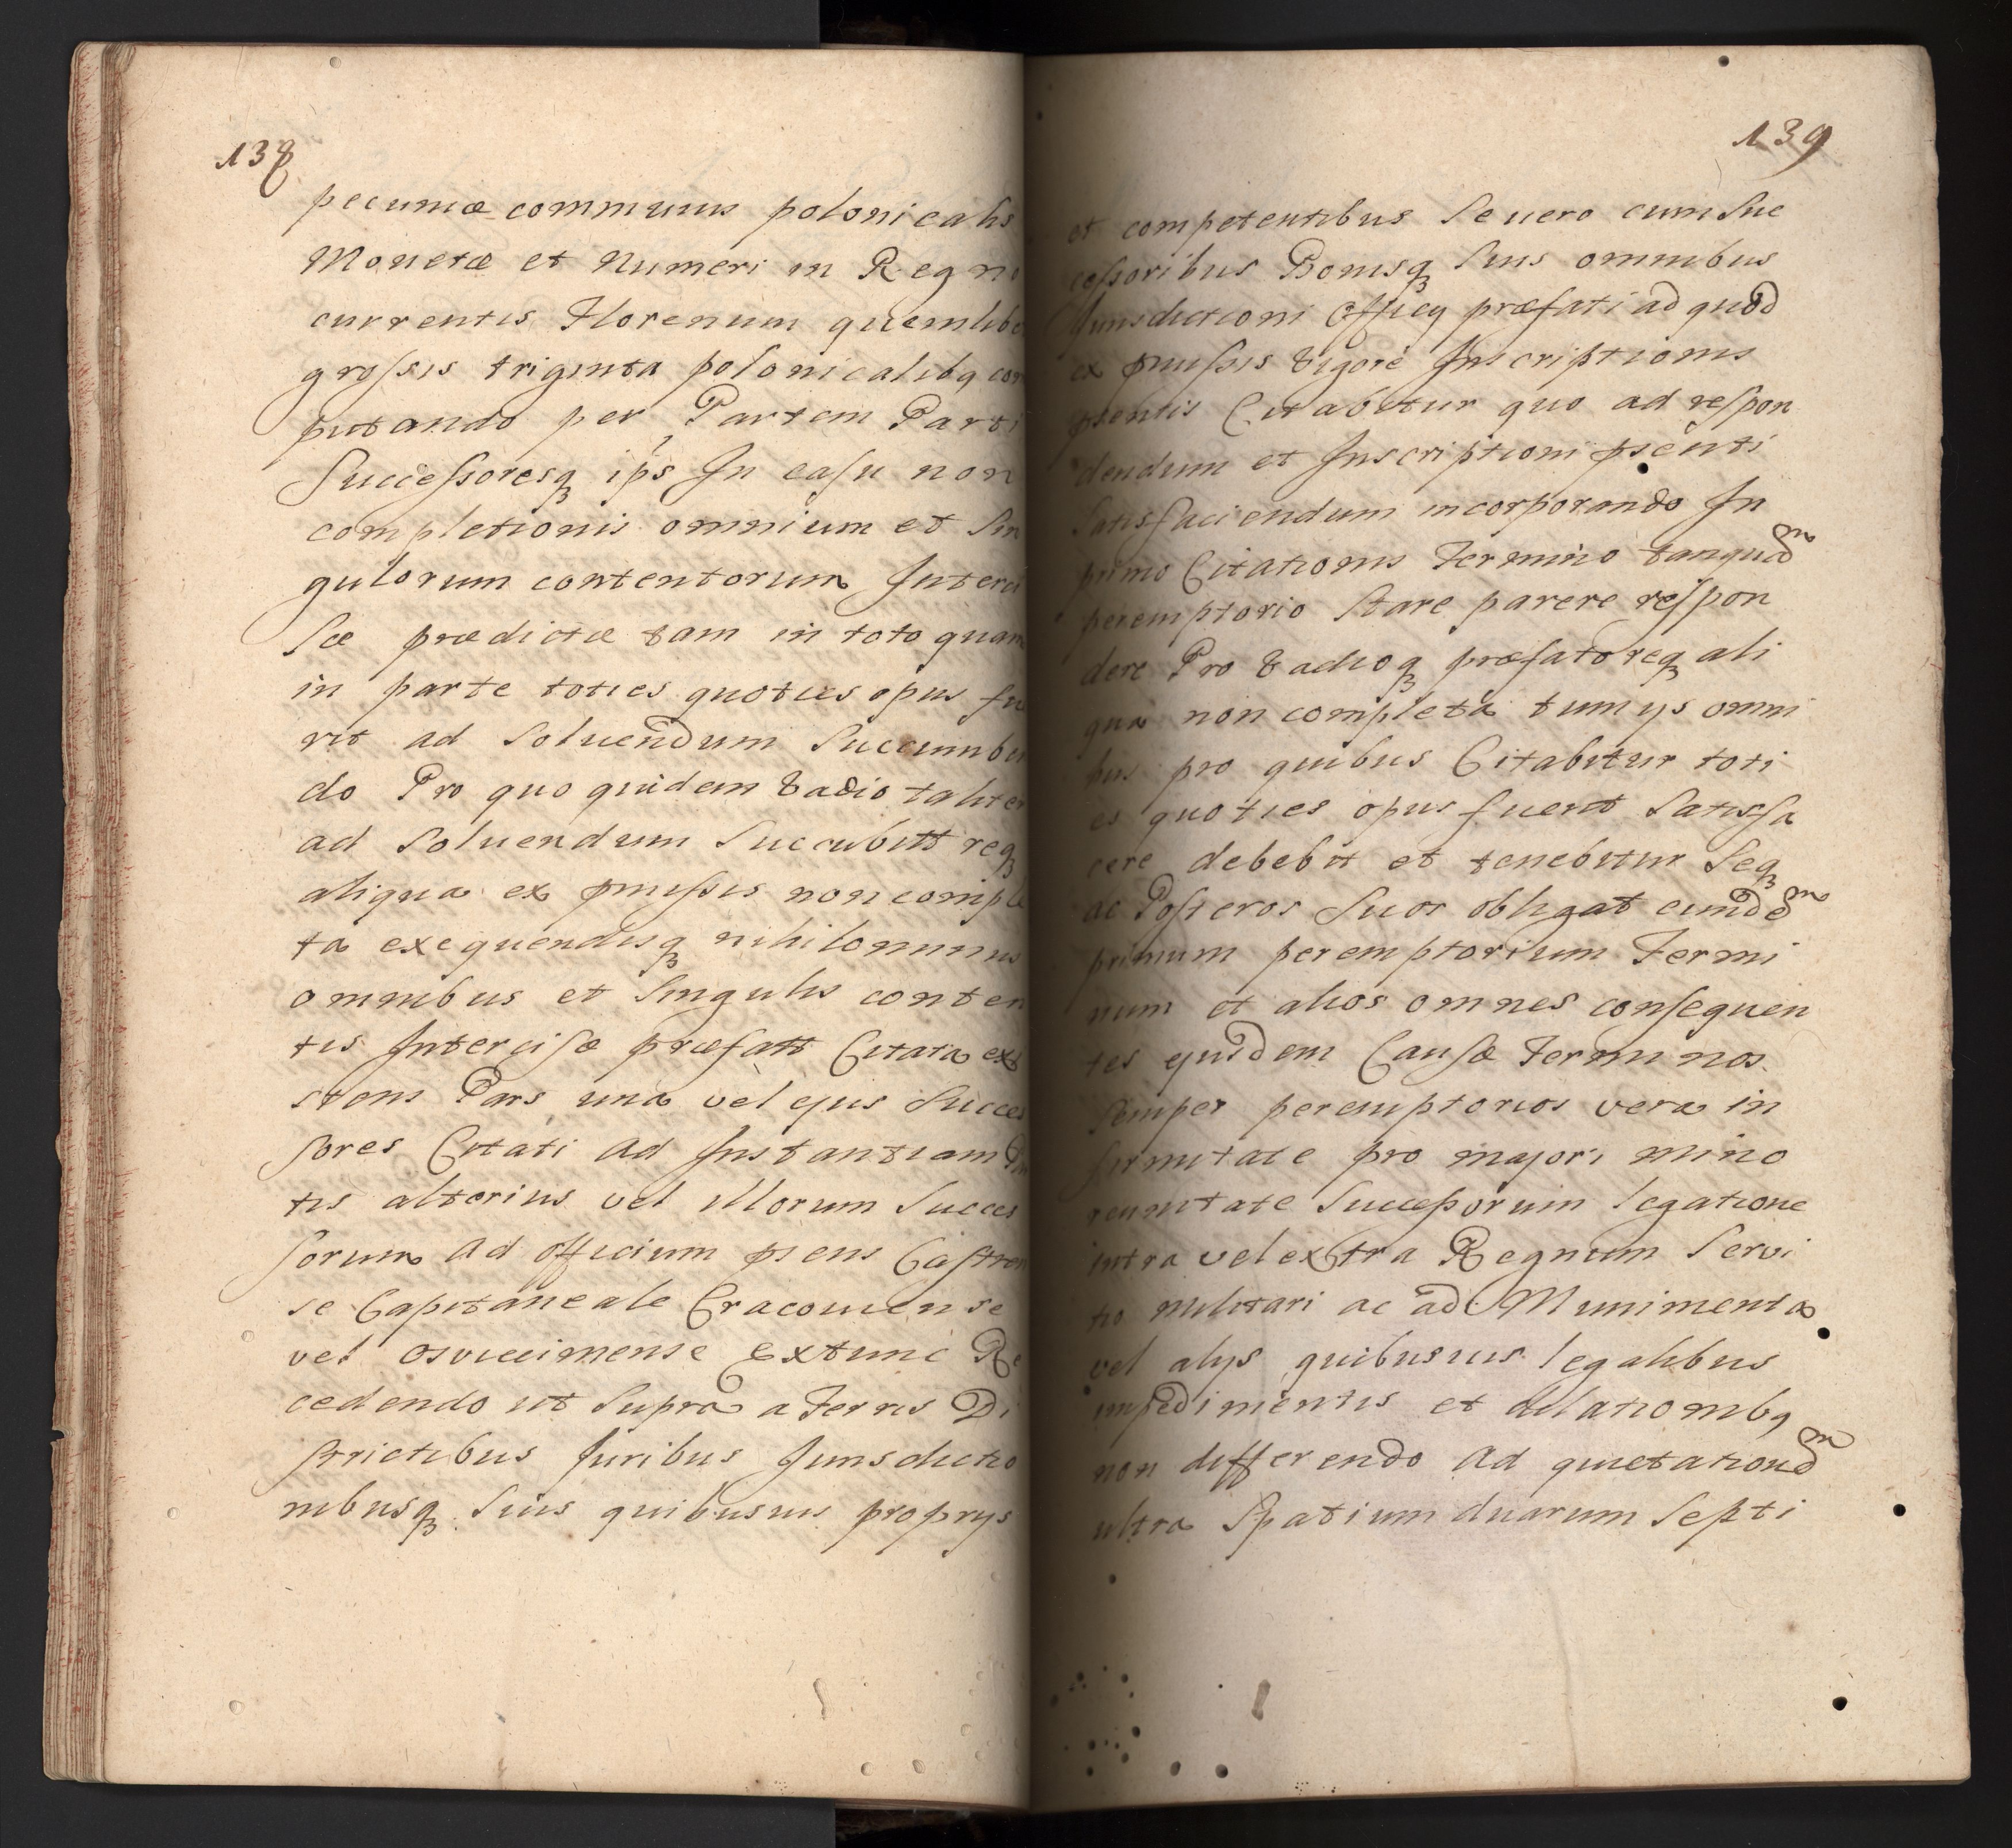 138
pecuniæ communis polonicalis
Monetæ et Numeri in Regn
currentis Florenum quemlib
grossis triginta polonicalibq co
putando per Partem Parti
Successoresq ips In casu non
completionis omnium et Sin
gulorum contentorum Interci
sæ prædictæ tam in toto quam
in parte toties quoties opus fu
rit ad Soluendum Succumb
do Pro quo quidem Vadio talite
ad Soluendum Succubitt req
aliqua ex pmissis non comple
ta exequendisq nihilominus
omnibus et Singulis conten
tis Intercisæ præfatt Citata exi
stens Pars una vel ejus Succes
sores Citati ad Instantiam
tis alterius vel illorum Succes
sorum ad officium psens Castren
se Capitaneale Cracouiense
vel Osviecimense Extunc Re
cedendo ut Supra a Terris Di
strictibus Juribus Jurisdictio
nibusq Suis quibusuis proprys
139
et competentibus Se uero cum Suc
cessoribus Bonisq Suis omnibus
Jurisdictioni Officy præfati ad quod
ex pmissis Vigore Inscriptionis
psentis Citabitur quo ad respon
dendum et Inscriptioni psenti
Satisfaciendum incorporando In
primo Citationis Termino tanquam
peremptorio Stare parere respon
dere Pro Vadioq præfato req ali
qua non completa tum ys omni
bus pro quibus Citabitur toti
es quoties opus fuerit Satisfa
cere debebit et tenebitur Seq
ac Posteros Suos obligat eundem
primum peremptorium Termi
num et alios omnes consequen
tes ejusdem Causæ Terminos
Semper peremptorios vera in
firmitate pro majori mino
rennitate Successorum legatione
intra vel extra Regnum Servi
tio militari ac ad Munimenta
vel alys quibusuis legalibus
impedimentis et dilationibq
non differendo ad quietationem
ultra Spatium duarum Septi